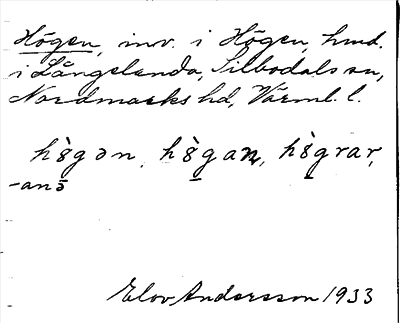 Högen, inv. i Högen, hmd.
i Långelanda, Silbodals sn,
Nordmarks hd, Värml. l.
hɞ̀gən, hɞ̀gan, hɞ̀grar,
-anə̄
Elov Andersson 1933